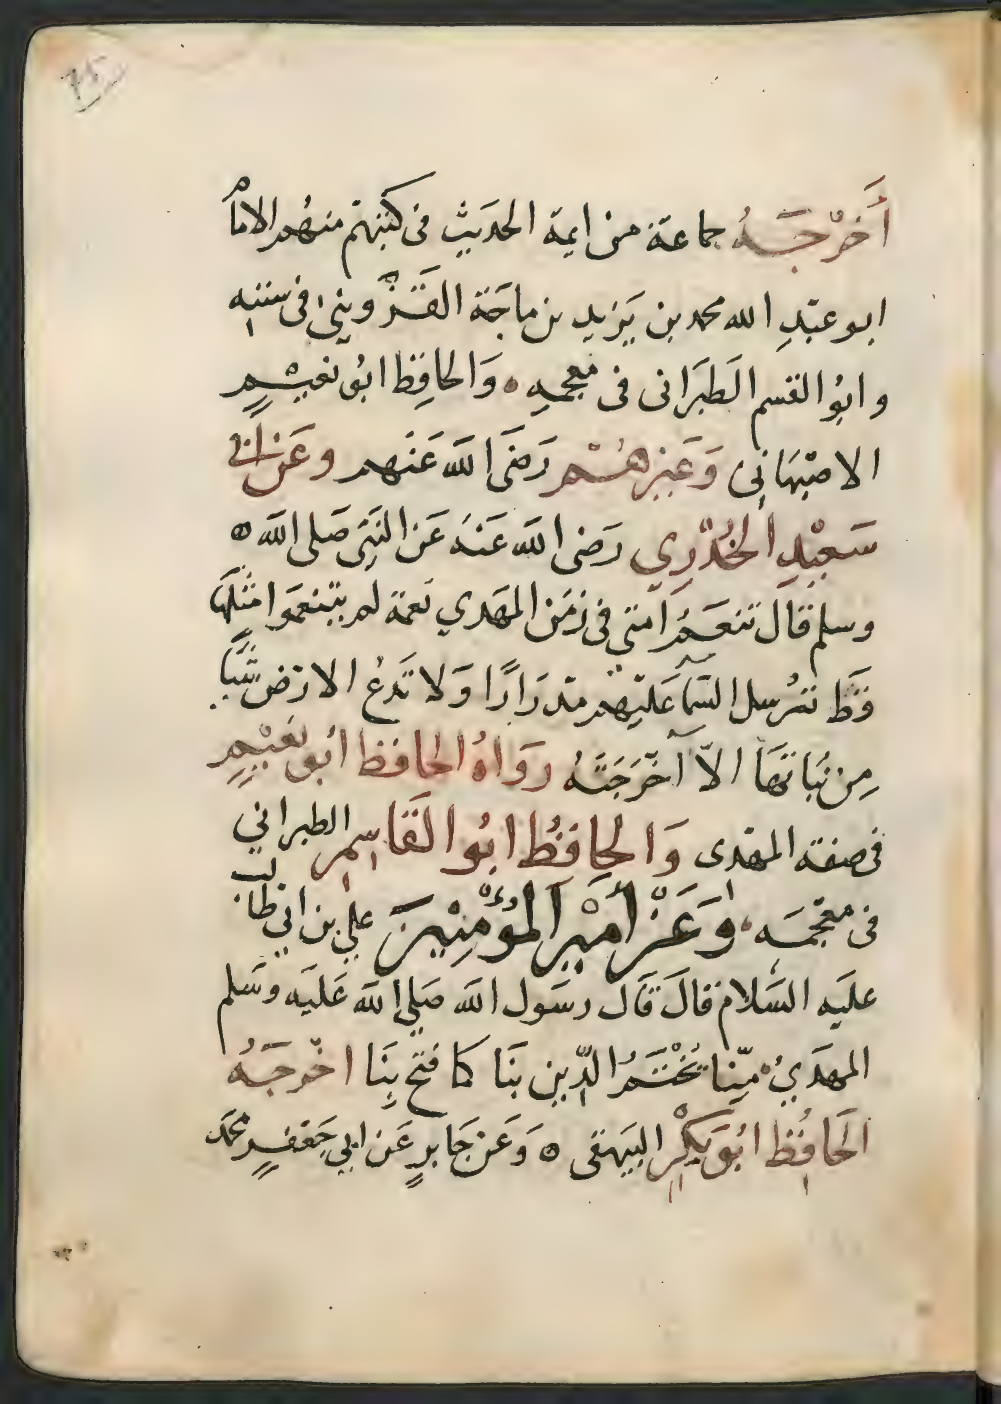 ٧٥
أَخرجَهُ جماعة من ايمة الحديث فى كتبهم منهم الامام
ابو عبدِ الله محمد بن يَزيد بن ماجَة القَزوينى فى سننه
وابوُ القسم الطبَرانى فى معجمهِ ٥ وَالحافِظ ابوُ نعيمٍ
الاصبَهانِى وَغيرهُم رَضىَ الله عَنهم وعَن أبى
سَعيْدِ الخُدْرِي رَضى الله عَنهُ عَن النبَى صَلى الله ه
وسلم قالَ تنعَمُ امتى فى زمَن المهَدي نَعمة لم يتنعمَوا مثلهَا
قطَ ترُسل السَمآ عَليَهم مدرَارًا وَلا تَدعُ الارَض شَيًا
مِن نَباتهَا الاّ أخرَجَتهُ رَوَاهُ الحافظ ابُو نعَيمٍ
فى صفة المهدى وَالحافِظُ ابُو القَاسِمِ الطبراني
فى معجَمه ٥ وَعَنْ أَميْرِ المُؤْمِنِيْنَ علي بن ابي طالب
عليَه السَلام قالَ قَال رسَول الله صَلي الله عَليَه وسَلم
المهَدَيُ مِنّا يُخْتَمُ الدِّين بنَا كما فتح بِنَا اخرجَهُ
الحَافِظُ ابُو بَكْرِ البَيهقى ٥ وَعَن جَابرٍ عَن ابي جَعفرٍ محمَد